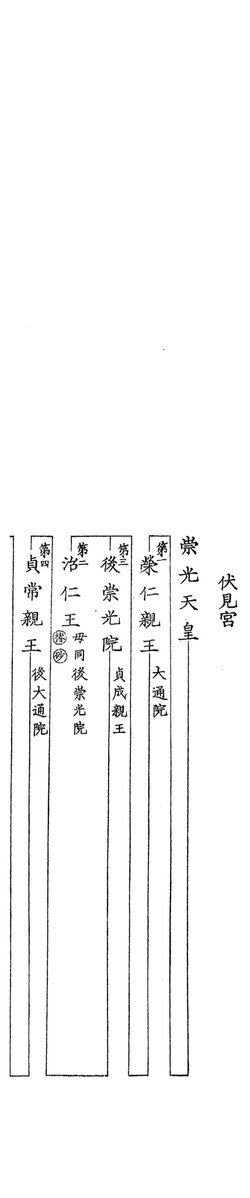 伏見宮
崇光天皇
第一
榮仁親王 大通院
第三
後崇光院 貞成親王
第二
治仁王 母同後崇光院
第四
貞常親王 後大通院